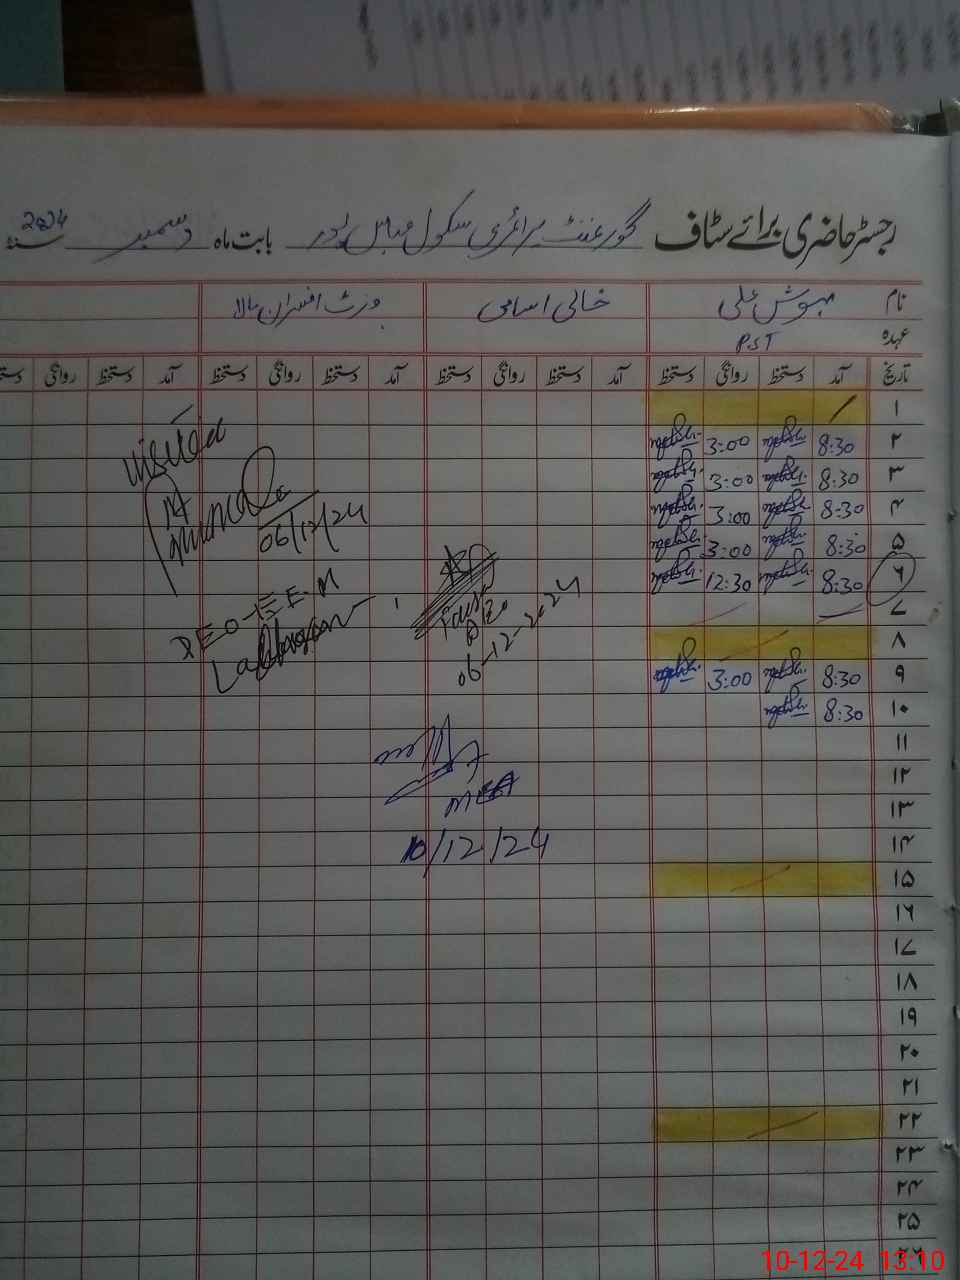 رجسٹر حاضری برائے سٹاف گورنمنٹ پرائمری سکول عباس پور بابت ماہ دسمبر سنہ 2024
نام مہوش علی خالی اسامی وزٹ افسران بالا
عہدہ PST
تاریخ آمد دستخط روانگی دستخط آمد دستخط روانگی دستخط آمد دستخط روانگی دستخط آمد دستخط روانگی دستخط
۱
۲ 8:30 3:00
۳ 8:30 3:00
۴ 8:30 3:00
۵ 8:30 3:00
۶ 8:30 12:30
۷
۸
۹ 8:30 3:00
۱۰ 8:30
۱۱
۱۲
۱۳
۱۴
۱۵
۱۶
۱۷
۱۸
۱۹
۲۰
۲۱
۲۲
۲۳
۲۴
۲۵
۲۶
visited
06/12/24
06-12-2024
10/12/24
10-12-24 13:10